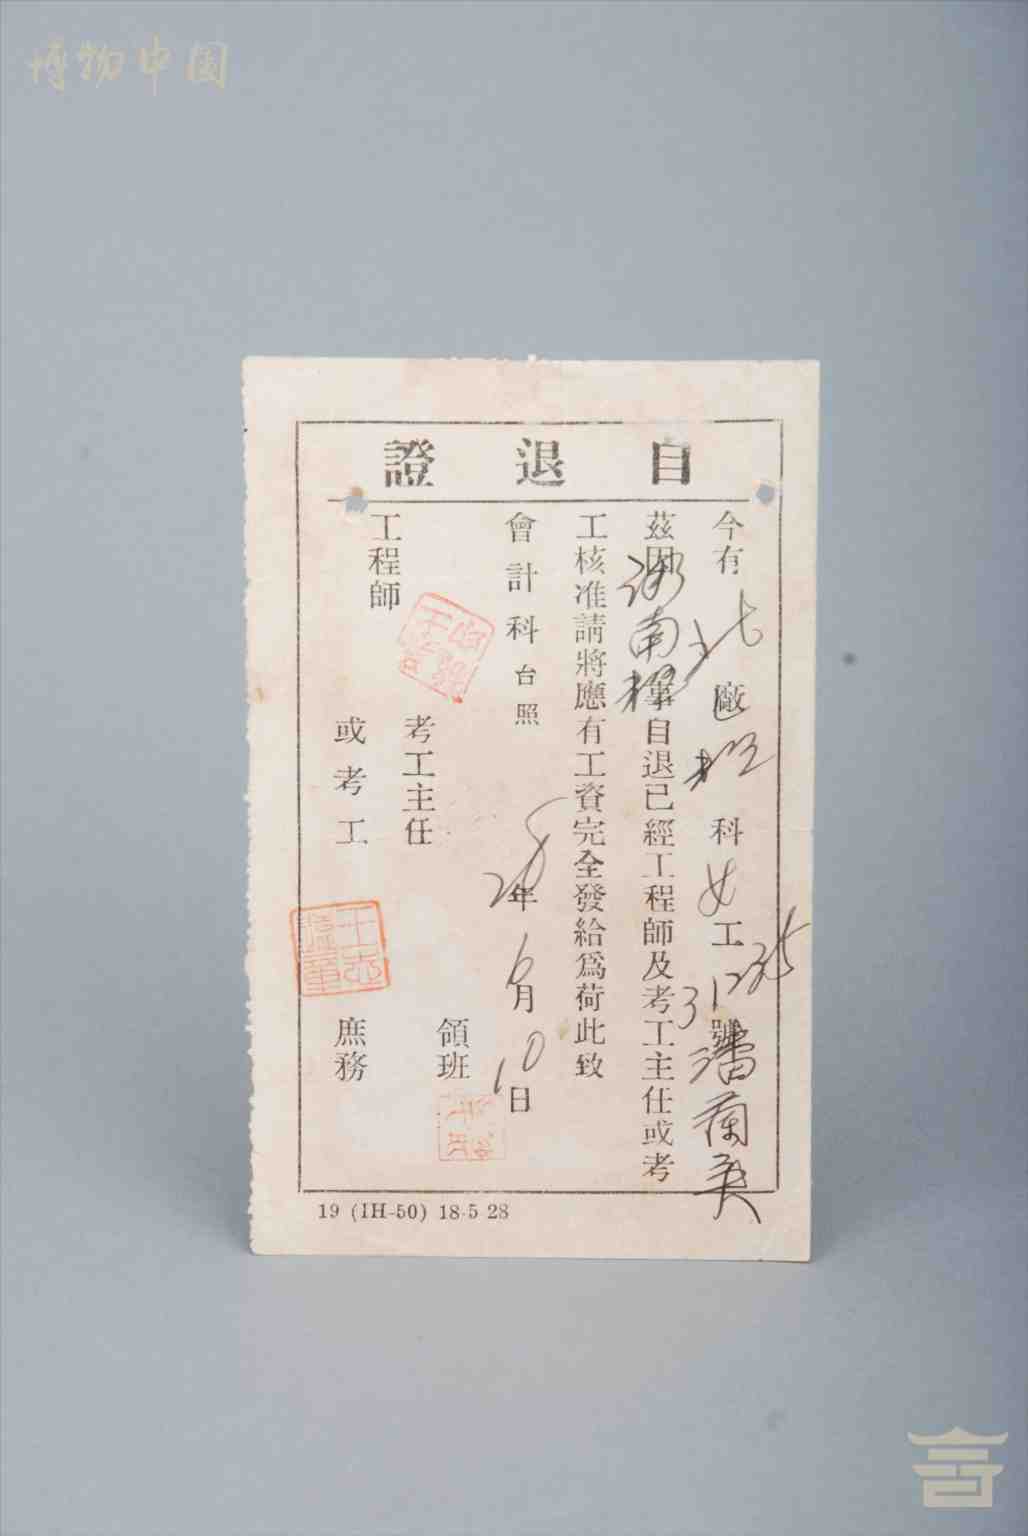 博物中国
自退證
今有北廠 科女工 號潘蘭英
茲因 事自退已經工程師及考工主任或考
工核准請將應有工資完全發給爲荷此致
會計科台照
28年6月10日
工程師
考工主任
領班
或考工
庶務
19 (1H-50) 18-5 28